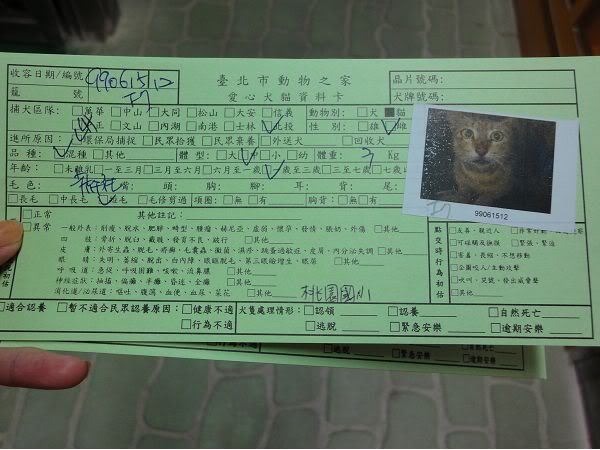 收容日期/編號 99061512 臺北市動物之家 晶片號碼:
籠 號 愛心犬貓資料卡 犬牌號碼:
捕犬區隊: □萬華 □中山 □大同 □松山 □大安 □信義 動物別: □犬 ■貓
□中正 □文山 □內湖 □南港 □士林 □北投 性 別: □雄 □雌
進所原因: □環保局捕捉 □民眾拾獲 □民眾棄養 □外送犬 □回收犬
品 種: □混種 □其他 體型: □大 □中 □小 □幼 體重: 3 Kg
年齡: □未離乳 □一至三月 □三至六月 □六月至一歲 □一歲至三歲 □三至七歲
毛色: 嘴 頭 胸 腳 耳 背 尾
□長毛 □中長毛 □短毛 □毛修剪過 項圈: □無 □有 胸背: □無 □有
□正常 其他註記:
□異常
一般外表: 削瘦、脫水、肥胖、畸型、腫瘤、赫尼亞、虛弱、懷孕、發情、脹奶、外傷 □其他
四 肢: 骨折、脫臼、截肢、發育不良、跛行 □其他
皮 膚: 外寄生蟲、脫毛、疥癬、毛囊蟲、黴菌、濕疹、跳蚤過敏症、皮屑、內分泌失調 □其他
眼 睛: 失明、萎縮、脫出、白內障、眼瞼脫毛、第三眼瞼增生、眼屎 □其他
呼 吸 道: 急促、呼吸困難、咳嗽、流鼻膿 □其他
神經症狀: 抽搐、偏癱、半癱、昏迷、全癱 □其他
消化道/泌尿道: 嘔吐、腹瀉、血便、血尿、菜花 □其他 桃園國小
點交時行為初估
□友善、親近人
□可碰觸及撫摸 □緊張、緊迫
□害羞、長縮、不想移動
□企圖咬人/主動攻擊
□吠叫、見號、發出威脅聲
□其他
99061512
□適合認養 □暫不適合民眾認養原因: □健康不適 犬隻處理情形: □認領 □認養 □自然死亡
□行為不適 □逃脫 □緊急安樂 □逾期安樂
□行為不適 □逃脫 □緊急安樂 □逾期安樂